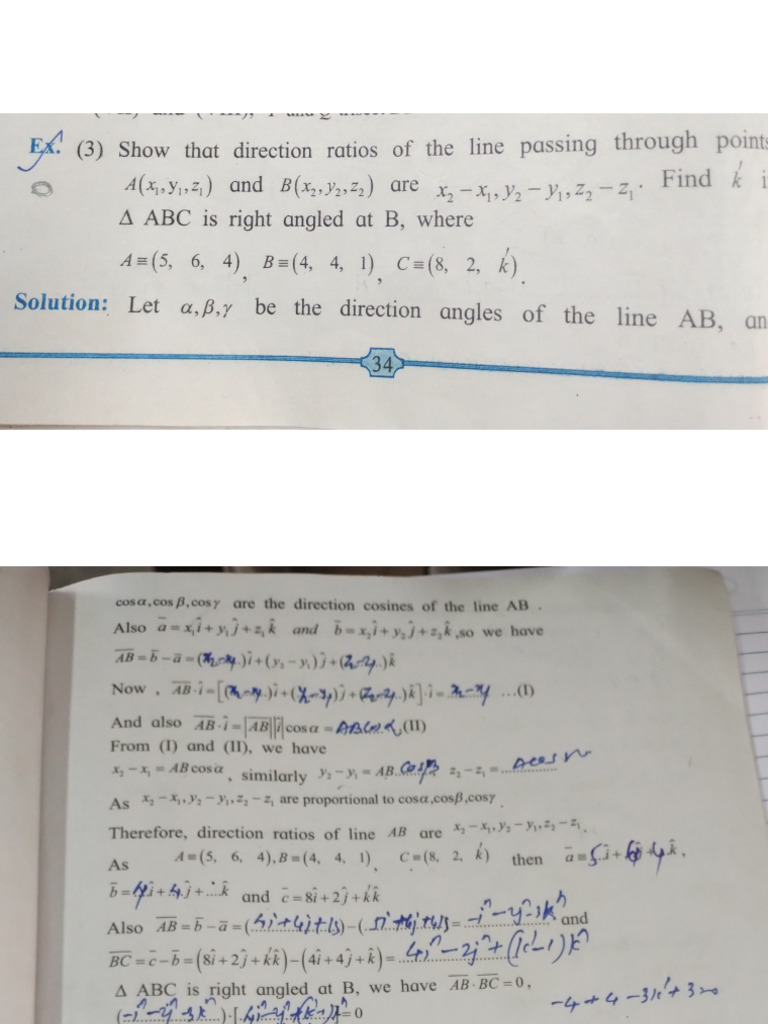 Ex. (3) Show that direction ratios of the line passing through points
A(x₁,y₁,z₁) and B(x₂,y₂,z₂) are x₂−x₁,y₂−y₁,z₂−z₁. Find k′ i
Δ ABC is right angled at B, where
A≡(5, 6, 4), B≡(4, 4, 1), C≡(8, 2, k′).
Solution: Let α,β,γ be the direction angles of the line AB, an
34
cosα,cosβ,cosγ are the direction cosines of the line AB .
Also a̅ = x₁î + y₁ĵ + z₁k̂ and b̅ = x₂î + y₂ĵ + z₂k̂ ,so we have
A̅B̅ = b̅ − a̅ = (x₂-x₁)î + (y₂ − y₁)ĵ + (z₂-z₁)k̂
Now , A̅B̅·î = [(x₂-x₁)î + (y₂-y₁)ĵ + (z₂-z₁)k̂]·î = x₂-x₁ ...(I)
And also A̅B̅·î = |A̅B̅||î|cosα = ABcosα (II)
From (I) and (II), we have
x₂ − x₁ = AB cosα , similarly y₂ − y₁ = AB cosβ z₂ − z₁ =
As x₂−x₁, y₂−y₁, z₂−z₁ are proportional to cosα,cosβ,cosγ .
Therefore, direction ratios of line AB are x₂−x₁,y₂−y₁,z₂−z₁.
As A=(5, 6, 4),B=(4, 4, 1), C=(8, 2, k′) then a̅ = 5î + ĵ + 4k̂ ,
b̅ = 4î + 4ĵ + ...k̂ and c̅ = 8î + 2ĵ + k′k̂
Also A̅B̅ = b̅ − a̅ = (4i+4j+k) − (5i+6j+4k) = -i^-2j^-3k^ and
B̅C̅ = c̅ − b̅ = (8î + 2ĵ + k′k̂) − (4î + 4ĵ + k̂) = 4i^-2j^+(k′-1)k^
Δ ABC is right angled at B, we have A̅B̅·B̅C̅ = 0,
(-i^-2j^-3k^)·[4i^-2j^+(k′-1)k^] = 0
-4+4-3k′+3=0